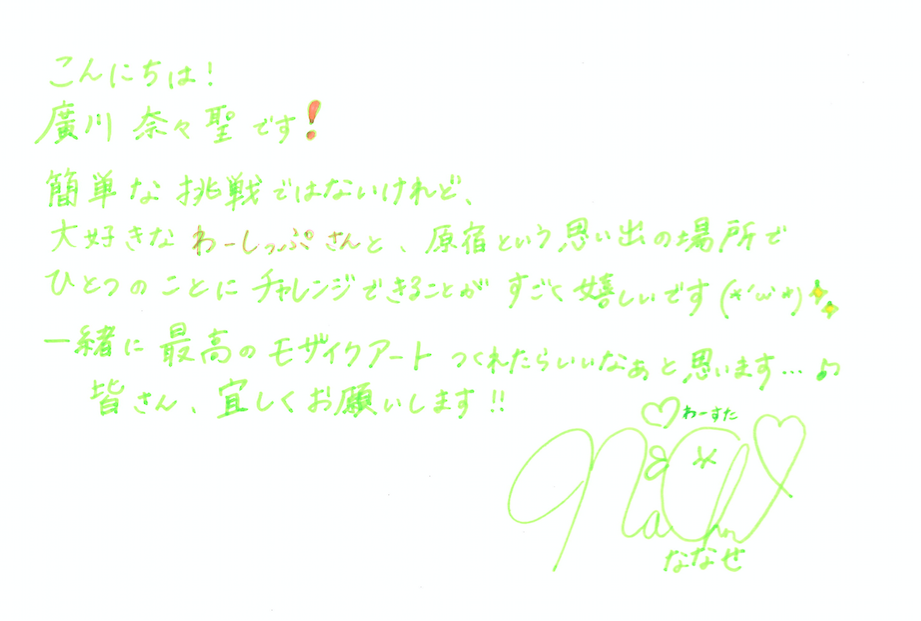 こんにちは!
廣川 奈々聖です❗
簡単な挑戦ではないけれど、
大好きな わーしっぷさんと、原宿という思い出の場所で
ひとつのことにチャレンジできることが すごく嬉しいです(*'ω'*)✨
一緒に最高のモザイクアート つくれたらいいなぁと思います…♪
皆さん、宜しくお願いします!!
♡わーすた
ななせ